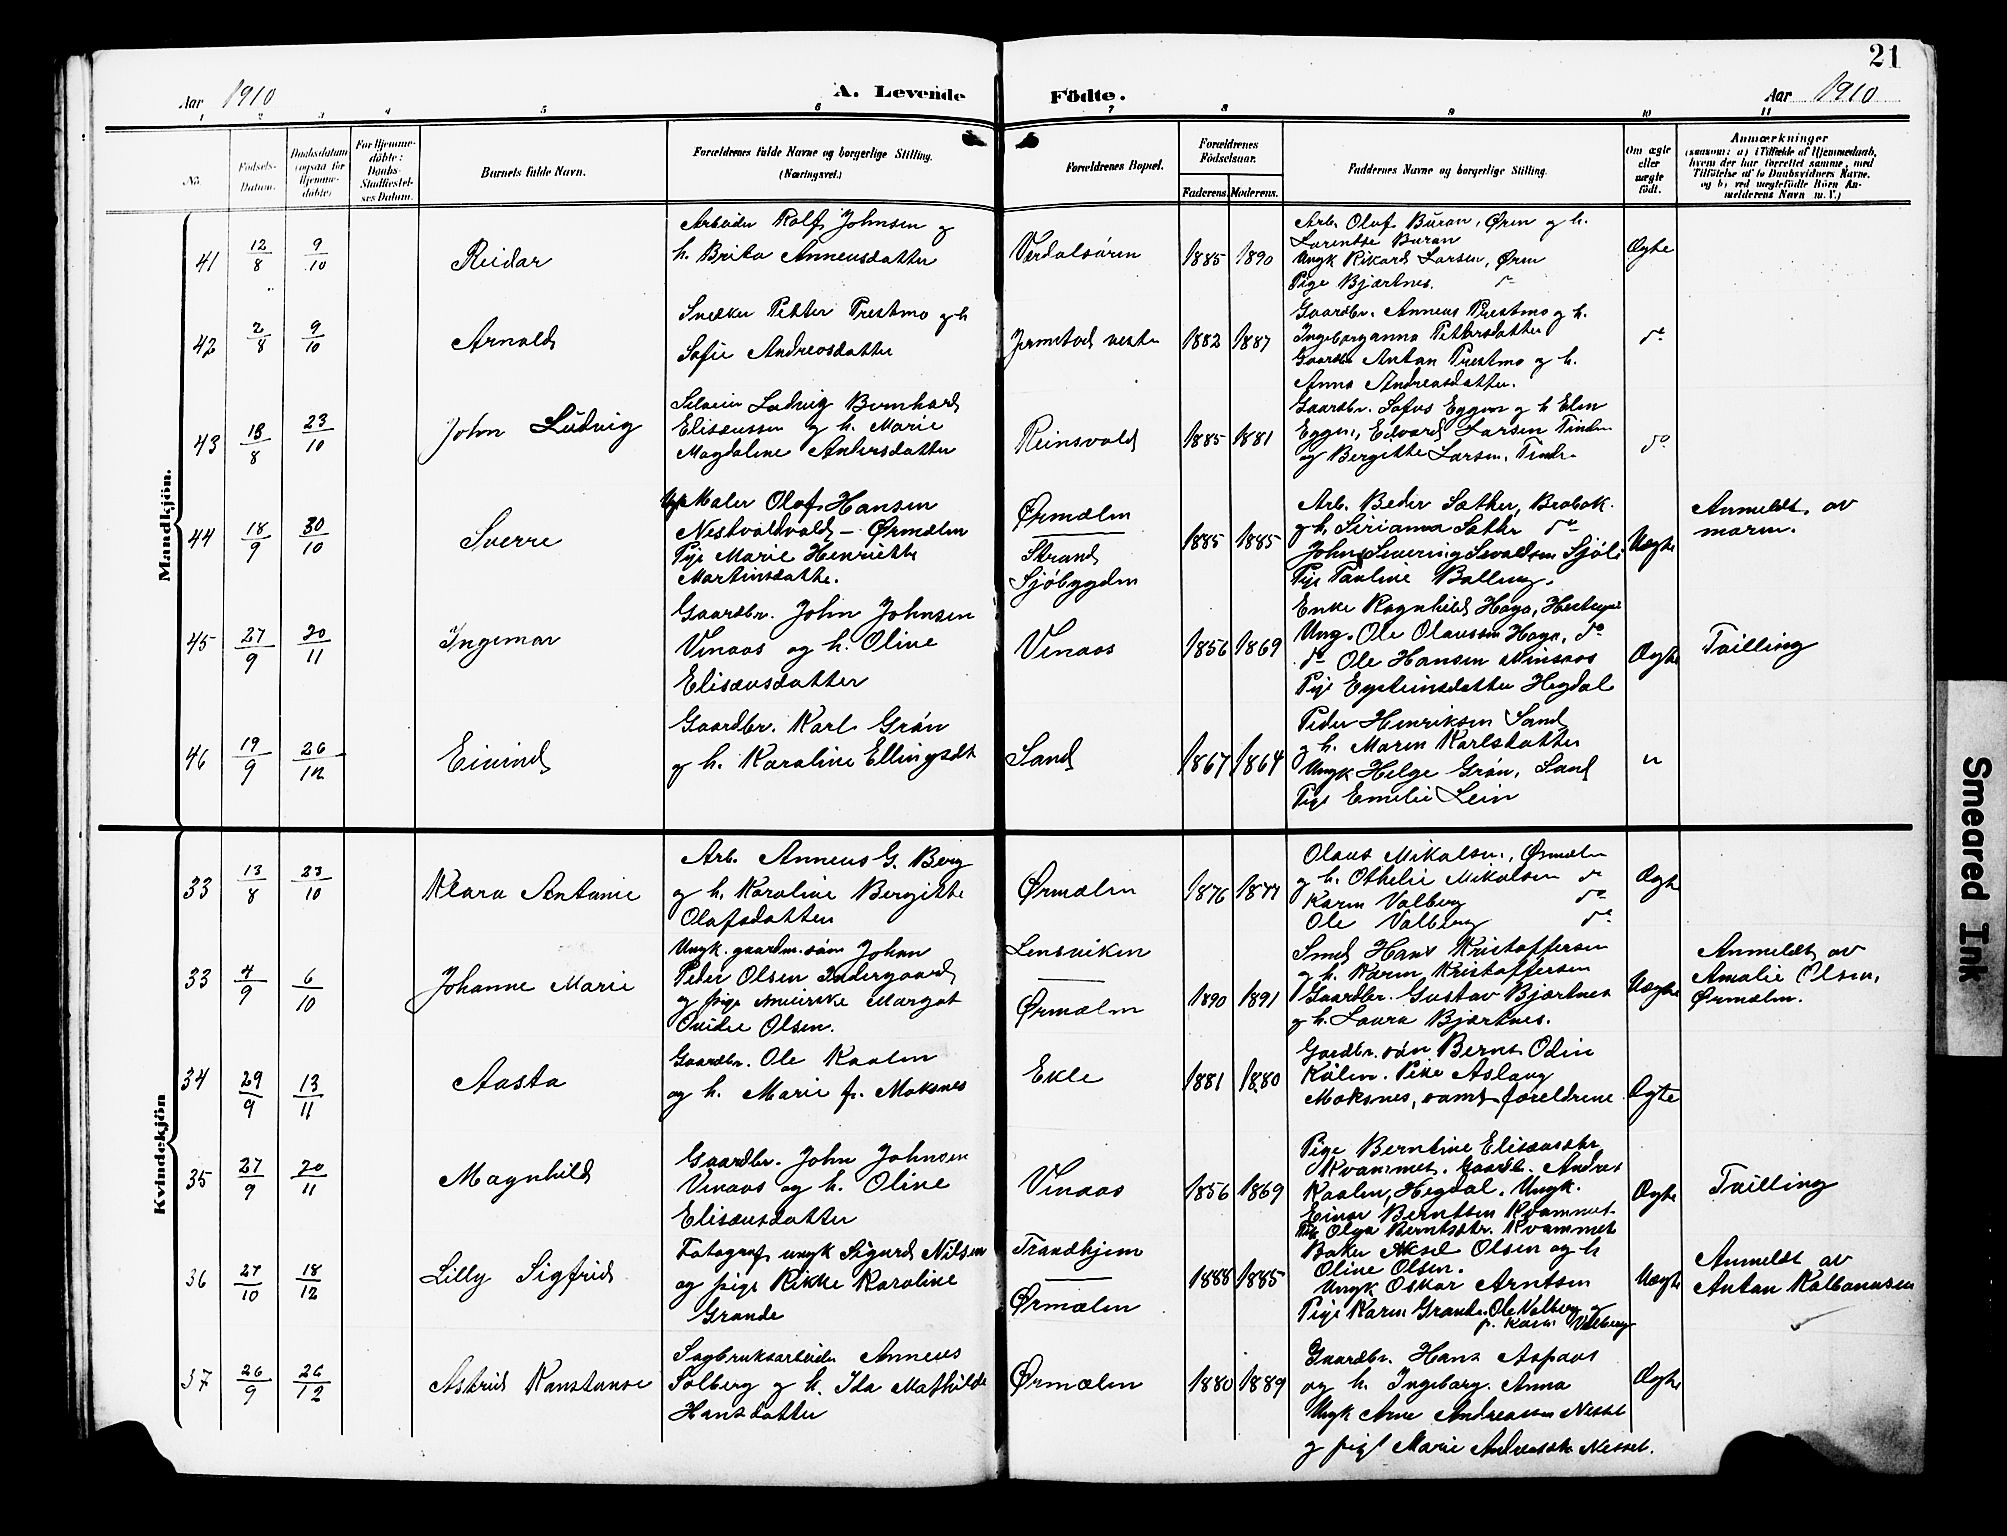 21
Aar 1910
A. Levende Födte.
Aar 1910
1 2 3 4 5 6 7 8 9 10 11
No.
Födsels-Datum.
Daabsdatum (ogsaa for Hjemmedöbte).
For Hjemmedöbte: Daabs-Stadfæstelses Datum.
Barnets fulde Navn.
Forældrenes fulde Navne og borgerlige Stilling. (Næringsvei.)
Forældrenes Bopæl.
Forældrenes Födselsaar.
Faderens. Moderens.
Faddernes Navne og borgerlige Stilling.
Om ægte eller uægte födt.
Anmærkninger
(saasom: a) i Tilfælde af Hjemmedaab, hvem der har forrettet samme, med Tilföielse af to Daabsvidners Navne, og b) ved uægtefödte Börn Anmelderens Navn m. V.)
Mandkjön.
41 12/8 9/10 Reidar
Arbeider Rolf Johnsen og
h. Brita Anneusdatter
Verdalsören 1885 1890
Arb. Oluf Buran, Ørin og h.
Larentse Buran
Ungk Rikard Larsen, Ørin
Pige Bjartnes. do
Ægte
42 2/8 9/10 Arnold
Snekker Petter Prestmo og h
Sofie Andreasdatter
Jermstad vestre 1882 1887
Gaardbr. Anneus Prestmo og h.
Ingeborganna Pettersdatter
Gaardbr Anton Prestmo og h.
Anna Andreasdatter.
do
43 18/8 23/10 John Ludvig
Ludvig Bernhard
Elisæussen og h. Marie
Magdaline Andersdatter
Reinsvald 1885 1881
Gaardbr. Sofus Eggen og h Elen
Eggen, Edvard Larsen
og Bergitte Larsen.
do
44 18/9 30/10 Sverre
Maler Olaf Hansen
Nestvoldvald – Ørmælen
Pige Marie Henriette
Martinsdatter.
Ørmælen
Strand
Sjöbygden
1885 1885
Arb. Peder Sæther,
og h. Sirianna Sæther do
John Severin Sevaldsen
Pige Pauline Balling.
Uægte
Anmeldt av
moren.
45 27/9 20/11 Ingemar
Gaardbr. John Johnsen
Vinaas og h. Oline
Elisæusdatter
Vinaas 1856 1869
Enke Ragnhild Haga,
Ung. Ole Olaussen Haga, do
do Ole Hansen
Pige Eysteinsdatter Hegdal
Ægte
Tvilling
46 19/9 26/12 Eivind
Gaardbr. Karl Grön
og h. Karoline Ellingsdt
Sand 1867 1864
Peder Henriksen Sand
og h. Maren Karlsdatter
Ungk Helge Grön, Sand
Pige Emelie Lein
"
Kvindekjön
33 13/8 23/10 Klara Antonie
Arb. Anneus G. Berg
og h. Karoline Bergitte
Olafsdatter
Ørmælen 1876 1877
Olaus Mikalsen, Ørmælen
og h. Othelie Mikalsen do
Karen Valberg do
Ole Valberg do
Ægte
33 4/9 6/10 Johanne Marie
Ungk. gaardm.søn Johan
Peder Olsen Indergaard
og pige Margot
Ovidie Olsen.
Lensviken
Ørmælen
1890 1891
Smed Hans Kristoffersen
og h. Karen Kristoffersen
Gaardbr. Gustav Bjartnes
og h. Laura Bjartnes.
Uægte
Anmeldt av
Amalie Olsen,
Ørmælen.
34 29/9 13/11 Aasta
Gaardbr. Ole Kaalen
og h. Marie f. Moksnes
Ekle 1881 1880
Gardbr. søn Bernt Odin
Kålen. Pike Aslaug
Moksnes, samt foreldrene
Ægte
35 27/9 20/11 Magnhild
Gaardbr. John Johnsen
Vinaas og h. Oline
Elisæusdatter
Vinaas 1856 1869
Pige Berntine Elisæusdtr
Kvammet. Gaardbr. Andreas
Kaalen, Hegdal. Ungk.
Einar Berntsen Kvammet
Pike Olga Berntsdtr. Kvammet
Ægte
Tvilling
36 27/10 18/12 Lilly Sigfrid
Fotograf ungk Sigurd Nilsen
og pige Rikke Karoline
Grande
Trondhjem
Ørmælen
1888 1885
Baker Aksel Olsen og h
Oline Olsen.
Ungk Oskar Arntsen
Pige Karen Grande, Ole Valberg og
p. Karen Valberg
Uægte
Anmeldt av
Anton Kolbanussen
37 26/9 26/12 Astrid Konstanse
Sagbruksarbeider Anneus
Solberg og h. Ida Mathilde
Hansdatter
Ørmælen 1880 1889
Gaardbr. Hans Aspaas
og h. Ingeborg. Anna
Ungk Arne Andreassen Nessel
og pige Marie Andreasdtr Nessel.
Ægte
Smeared Ink